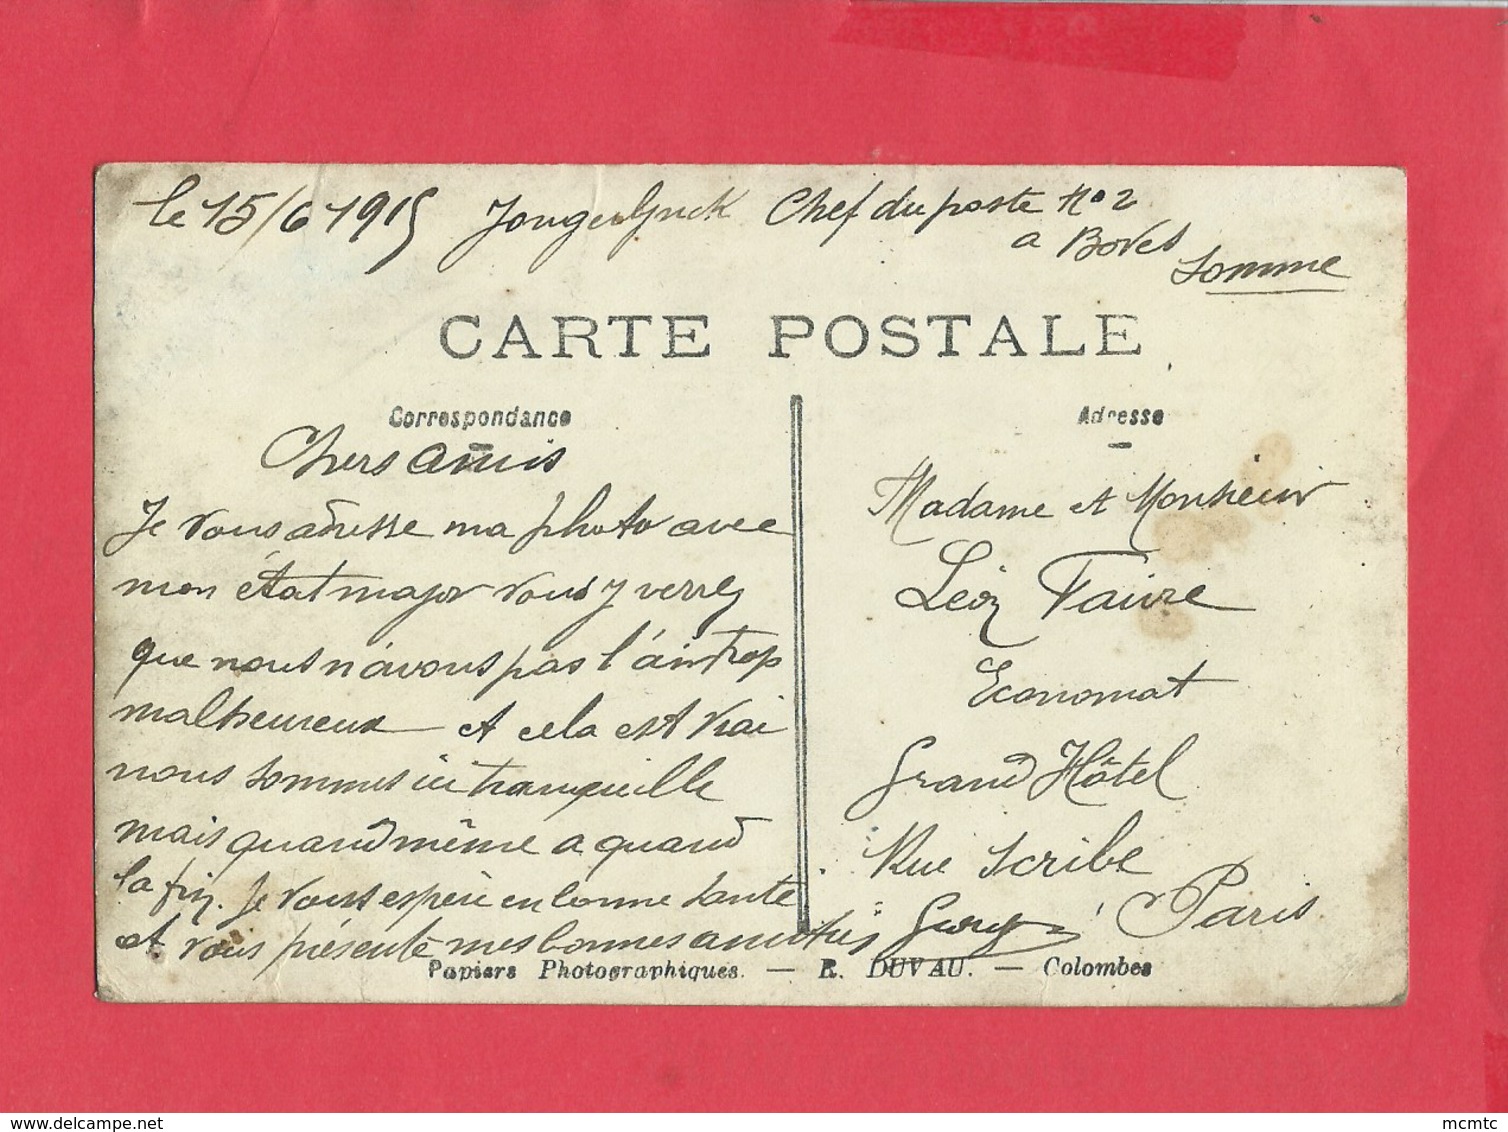 le 15/6 1915 Chef du poste No 2
a Boves
Somme
CARTE POSTALE
Correspondance
Adresse
Chers amis
Je vous adresse ma photo avec
mon état major vous y verrez
que nous n'avons pas l'air trop
malheureux et cela est vrai
nous sommes ici tranquille
mais quand même a quand
la fin. Je vous espère en bonne santé
et vous présente mes bonnes amitiés
Madame et Monsieur
Léon Faivre
Economat
Grand Hôtel
Rue Scribe
Paris
Papiers Photographiques. — R. DUVAU. — Colombes
delcampe.net
mcmtc